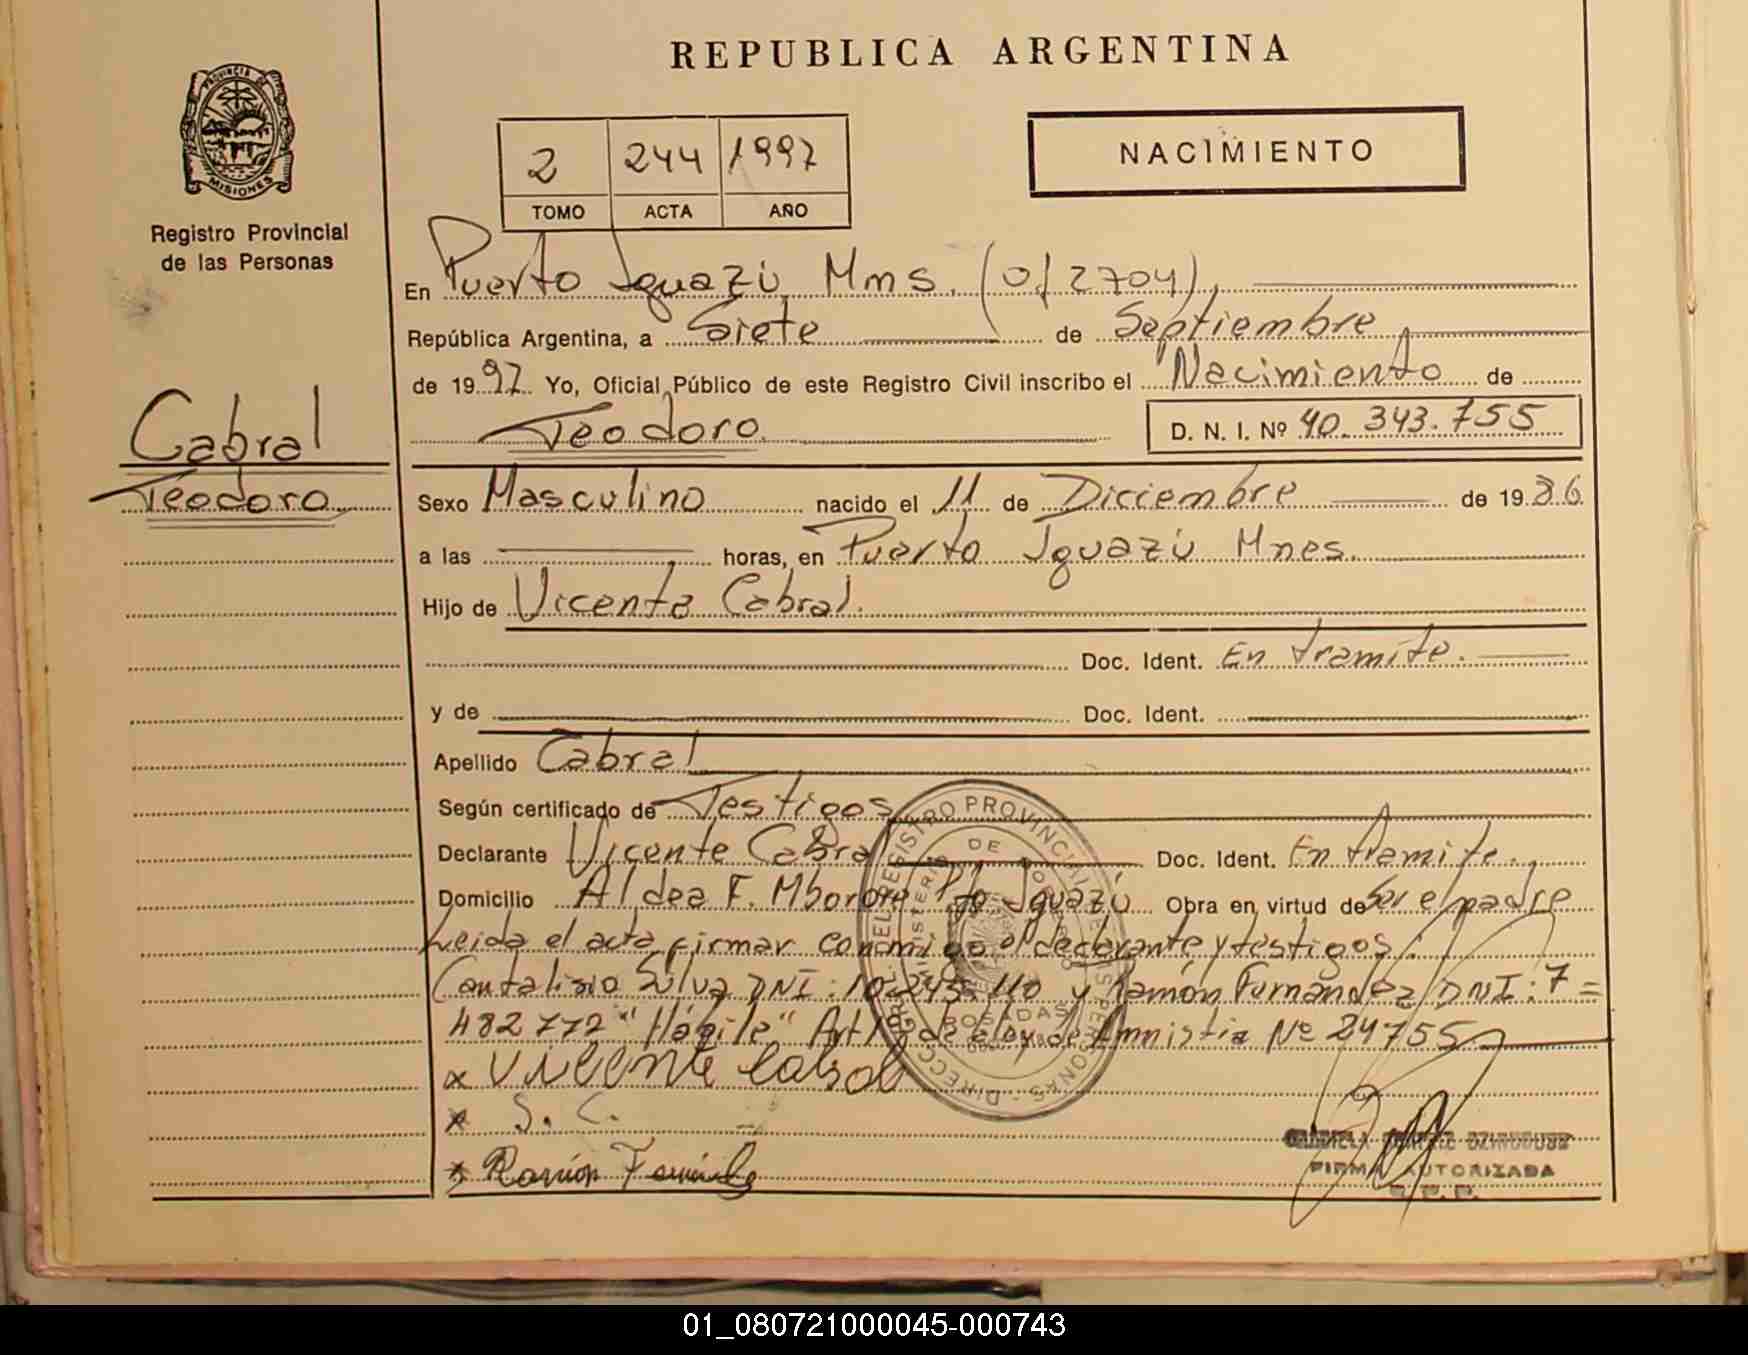 REPUBLICA ARGENTINA
PROVINCIA DE
MISIONES
Registro Provincial
de las Personas
2 244 1997
TOMO ACTA AÑO
NACIMIENTO
En Puerto Iguazú, Mnes. (Of 2704),
República Argentina, a Siete de Septiembre
de 1997 Yo, Oficial Público de este Registro Civil inscribo el Nacimiento de
Teodoro D. N. I. Nº 40.343.755
Cabral
Teodoro
Sexo Masculino nacido el 11 de Diciembre de 1986
a las horas, en Puerto Iguazú Mnes.
Hijo de Vicente Cabral.
Doc. Ident. En tramite.
y de Doc. Ident.
Apellido Cabral
Según certificado de Testigos
Declarante Vicente Cabral Doc. Ident. En tramite.
Domicilio Aldea F. Mbororé Pto Iguazú Obra en virtud de Ser el padre
Leida el acta firman conmigo el declarante y testigos:
Cantalicio Silva DNI: 10.243.110 y Ramón Fernandez DNI: 7=
482772 "Hábile" Art de ley de Amnistia Nº 24755
x Vicente Cabral
x S. C.
x Ramón
FIRMA AUTORIZADA
REGISTRO PROVINCIAL
DE
POSADAS
01_080721000045-000743